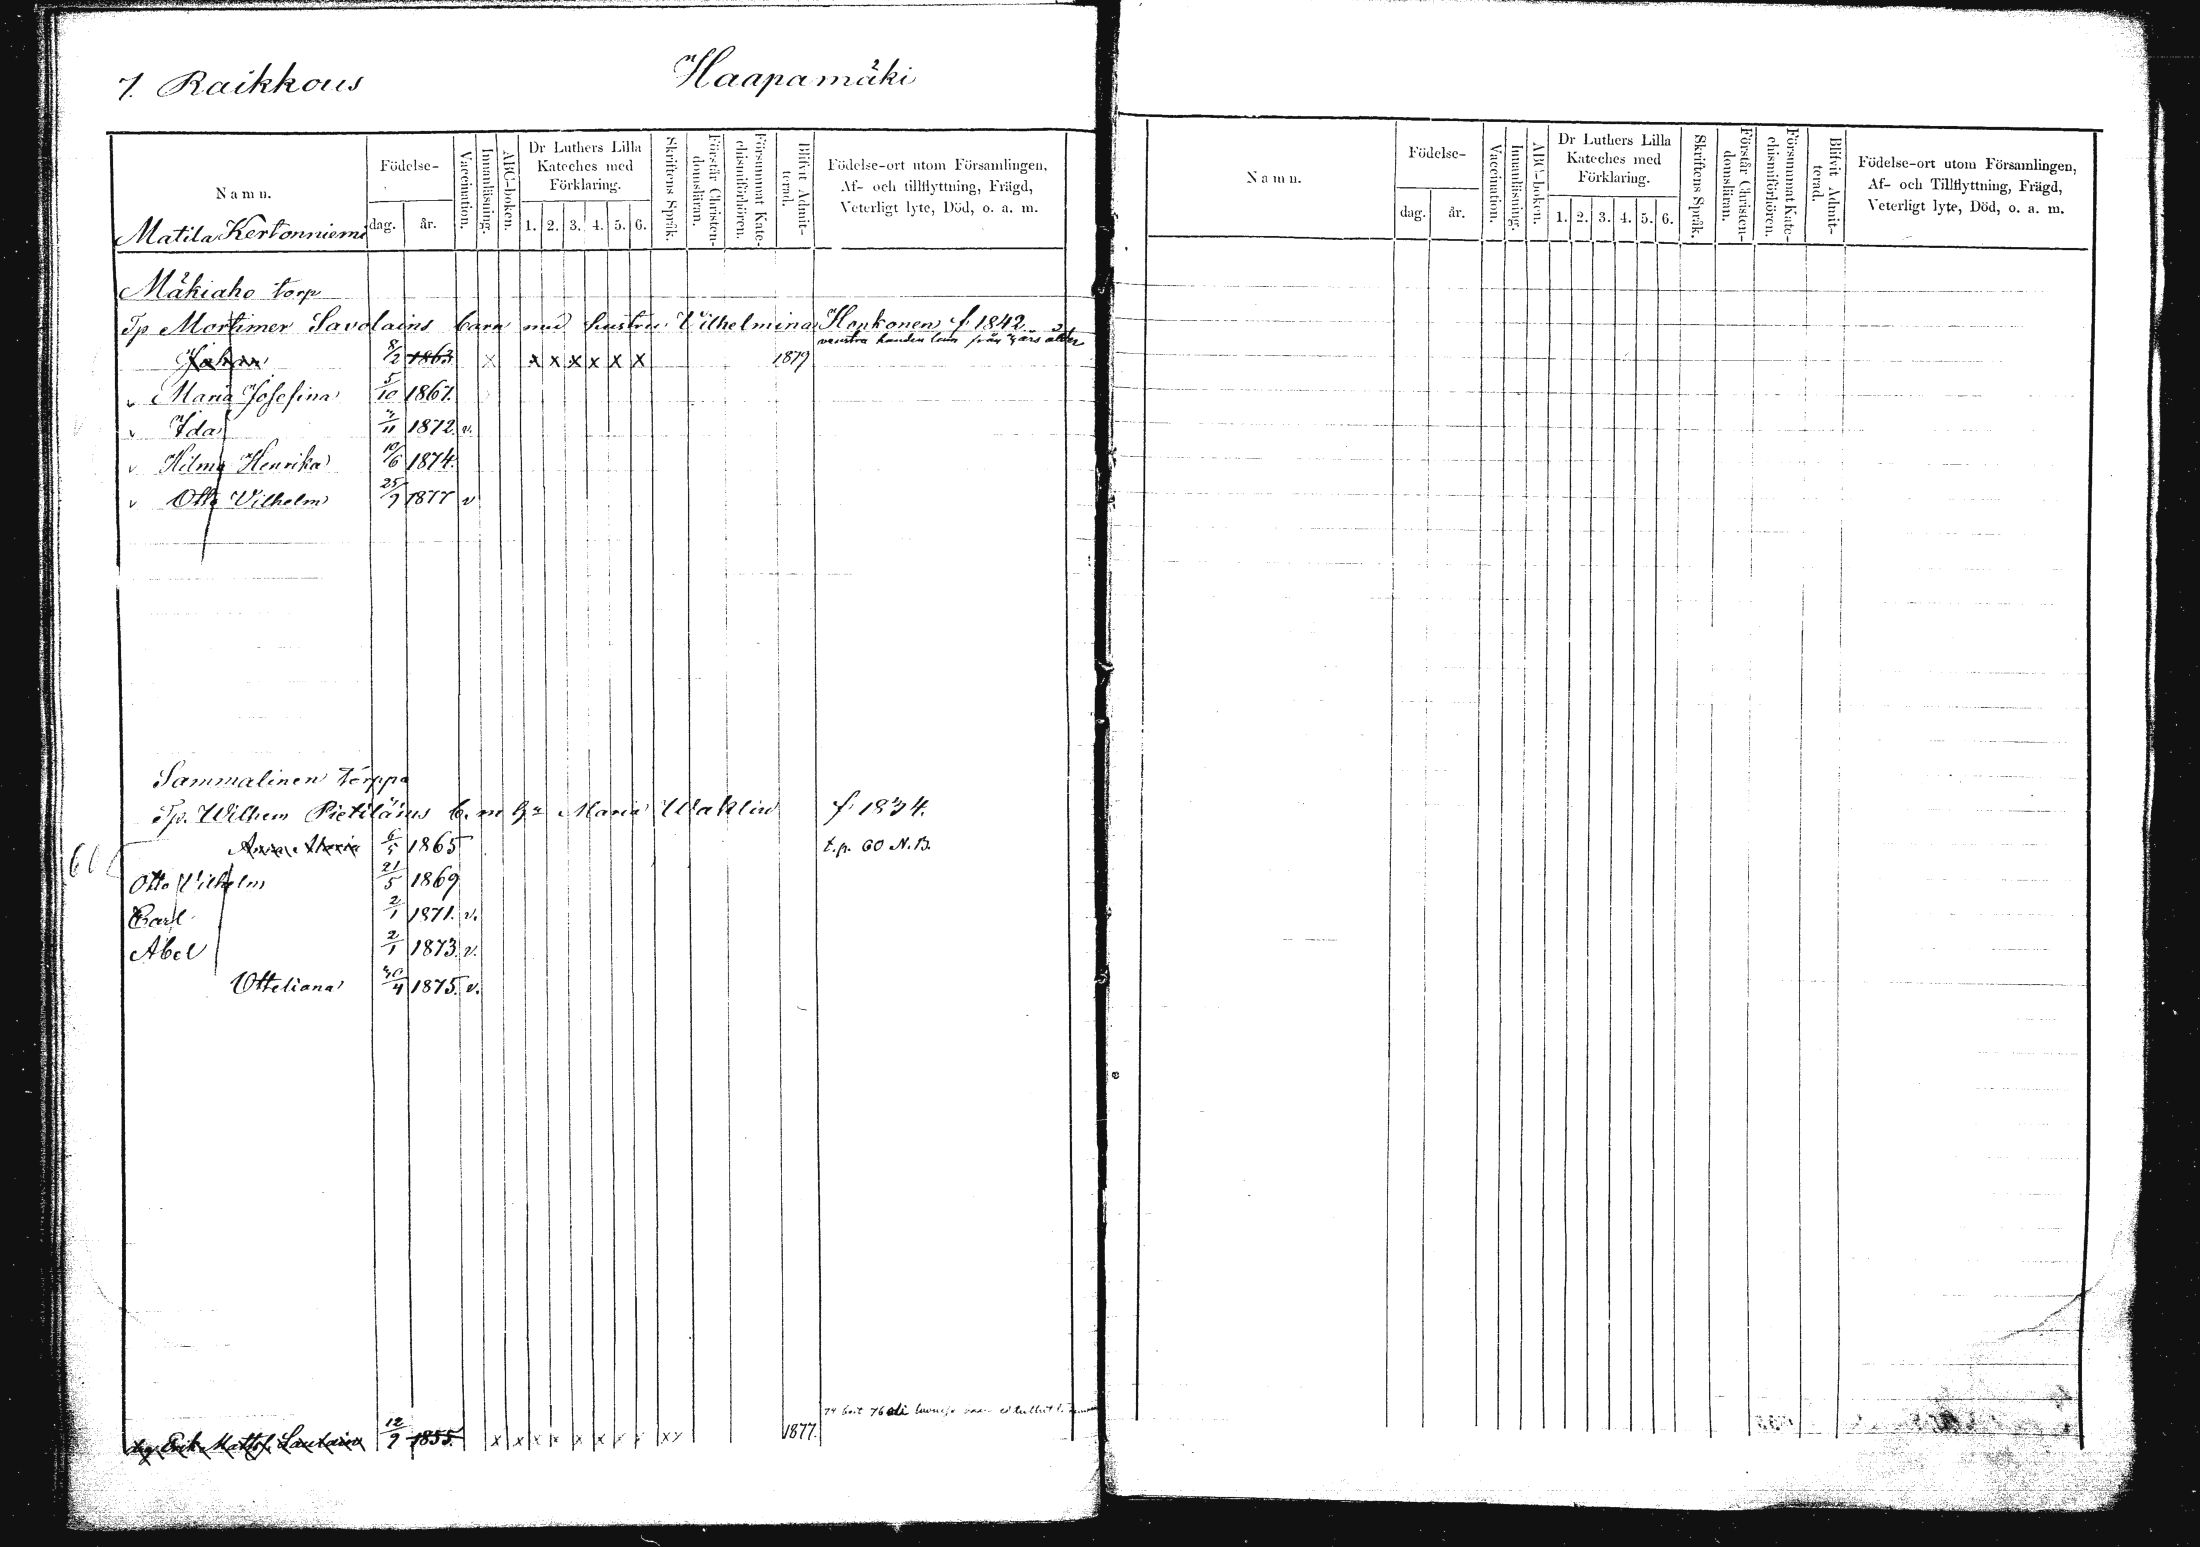 7. Raikkous Haapamäki
Namn. Födelse- dag. år. Vaccination. Innanläsning. ABC-boken. Dr Luthers Lilla Kateches med Förklaring. 1. 2. 3. 4. 5. 6. Skriftens Språk. Förstår Christendomsläran. Försummat Katechismiförhören. Blifvit Admitterad. Födelse-ort utom Församlingen, Af- och tillflyttning, Frägd, Veterligt lyte, Död, o. a. m.
Matila Kertonniemi
Mäkiaho torp
Tp Mortimer Savolains barn med hustru Vilhelmina Honkonen f. 1842
venstra handen från års ålder
Johan 8/2 1863 x x x x x x x 1879
v Maria Josefina 5/10 1867.
v Ida 1872. v.
v Hilma Henrika 10/6 1874.
v Otto Vilhelm 25/9 1877 v
Sammalinen torppa
Tp. Wilhem Pietiläins b. m h. Maria Waklin f. 1834.
Anna Maria 6/5 1865 t.p. 60 N.B.
Otto Vilhelm 21/5 1869
Carl 2/1 1871. v.
Abel 2/1 1873. v.
Otteliana 1875. v.
Erik Mattsf. 12/9 1855. x x x x x x x x x x 1877.
Namn. Födelse- dag. år. Vaccination. Innanläsning. ABC-boken. Dr Luthers Lilla Kateches med Förklaring. 1. 2. 3. 4. 5. 6. Skriftens Språk. Förstår Christendomsläran. Försummat Katechismiförhören. Blifvit Admitterad. Födelse-ort utom Församlingen, Af- och Tillflyttning, Frägd, Veterligt lyte, Död, o. a. m.